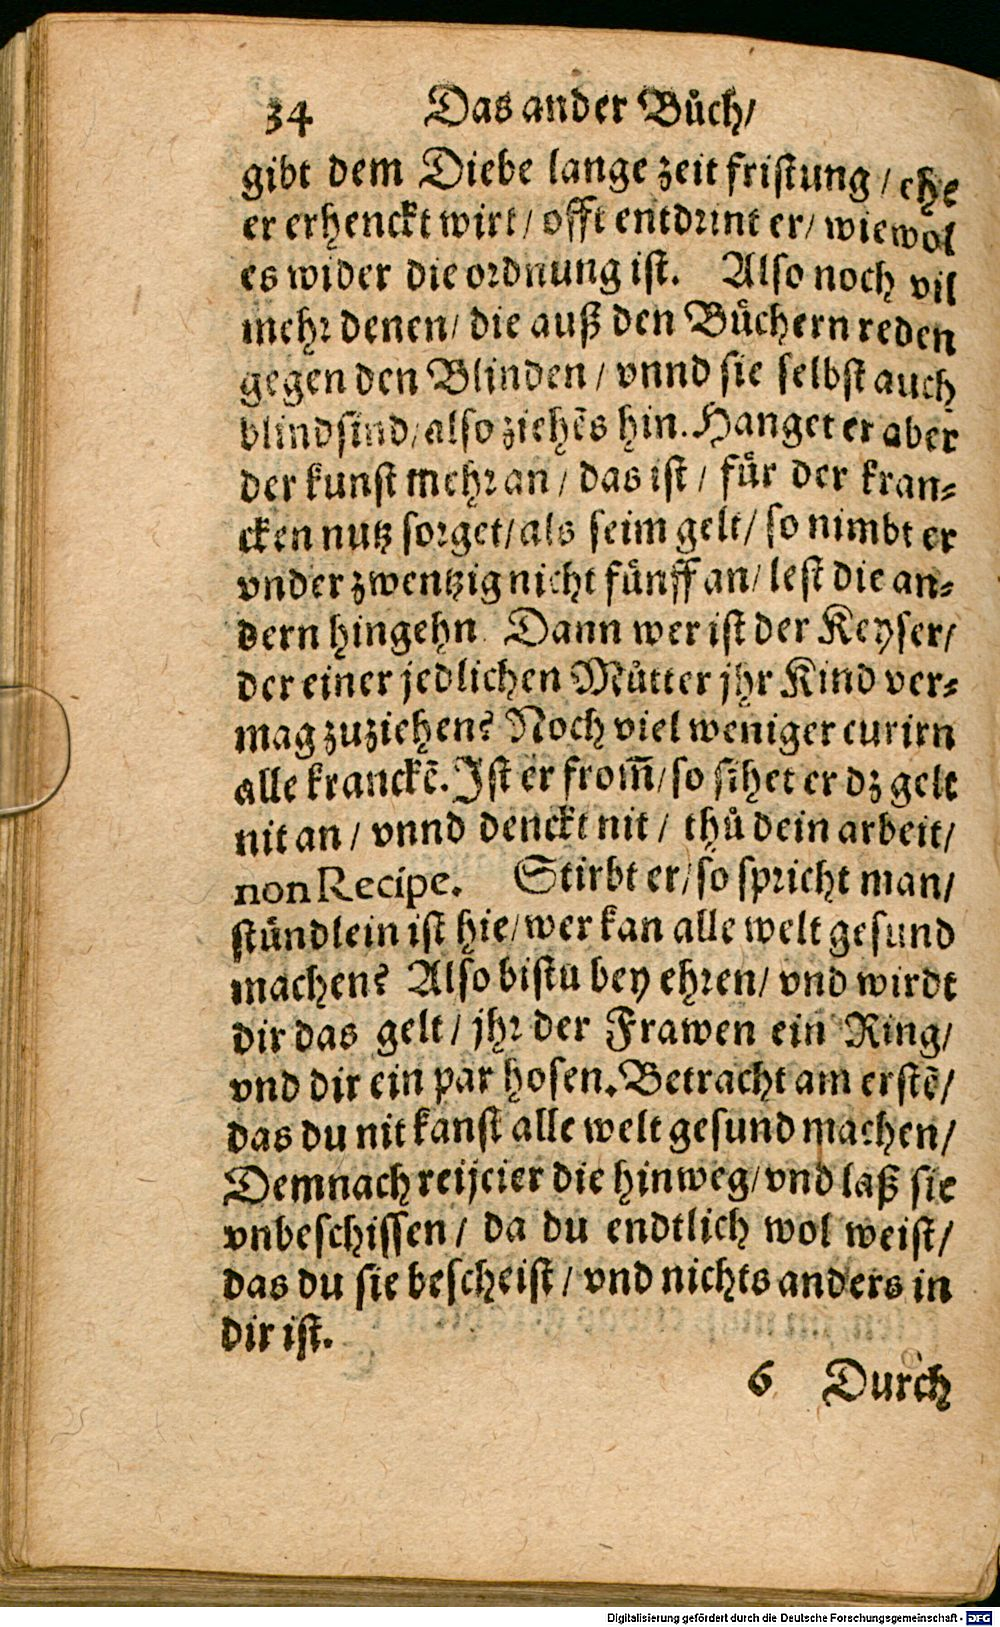 34 Das ander Bůch/
gibt dem Diebe lange zeit fristung / ehe
er erhenckt wirt / offt entdrint er / wiewol
es wider die ordnung ist. Also noch vil
mehr denen / die auß den Bůchern reden
gegen den Blinden / vnnd sie selbst auch
blind sind / also ziehẽs hin. Hanget er aber
der kunst mehr an / das ist / für der kran⸗
cken nutz sorget / als seim gelt / so nimbt er
vnder zwentzig nicht fünff an / lest die an⸗
dern hingehn Dann wer ist der Keyser /
der einer jedlichen Můtter jhr Kind ver⸗
mag zuziehen? Noch viel weniger curirn
alle kranckẽ. Ist er from̃ / so sihet er dz gelt
nit an / vnnd denckt nit / thů dein arbeit /
non Recipe. Stirbt er / so spricht man /
stündlein ist hie / wer kan alle welt gesund
machen? Also bistu bey ehren / vnd wirdt
dir das gelt / jhr der Frawen ein Ring /
vnd dir ein par hosen. Betracht am erstẽ /
das du nit kanst alle welt gesund machen /
Demnach reijcier die hinweg / vnd laß sie
vnbeschissen / da du endtlich wol weist /
das du sie bescheist / vnd nichts anders in
dir ist.
6 Durch
Digitalisierung gefördert durch die Deutsche Forschungsgemeinschaft - DFG